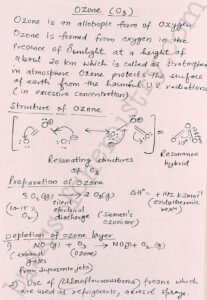 Ozone (O3)
Ozone is an allotropic form of Oxygen
Ozone is formed from oxygen in the
presence of Sunlight at a height of
about 20 km which is called as Stratosphere
in atmosphere Ozone protects the surface
of earth from the harmful U.V. radiations
(in excessive concentration)
Structure of Ozone
Resonating structures
of O3
Resonance
hybrid
Preparation of Ozone
3O2(g) 2O3(g) ΔH° = +142 kJ mol-1
(10-15% silent (endothermic
electrical rxn)
discharge (Siemen's
ozoniser)
Depletion of Ozone layer
1) NO(g) + O3 → NO2 + O2(g)
(exhaust (Ozone)
gases
from supersonic jets)
2) Use of (chlorofluorocarbons) freons which
are used as refrigerants, aerosol sprays.